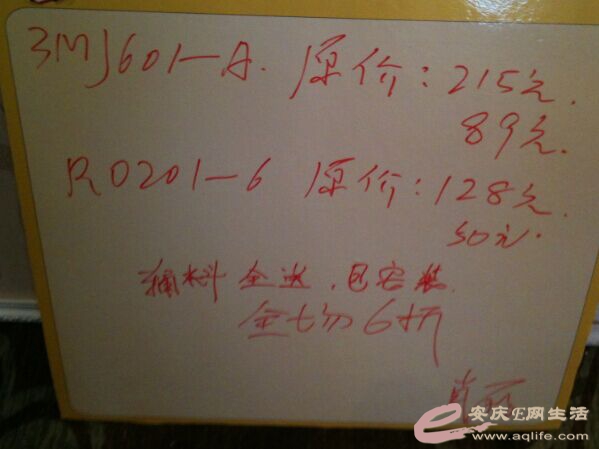 3MJ601-A. 原价：215元.
89元.
R0201-6 原价：128元.
50元.
辅料全送.包安装.
全场6折
肖
安庆E网生活
www.aqlife.com